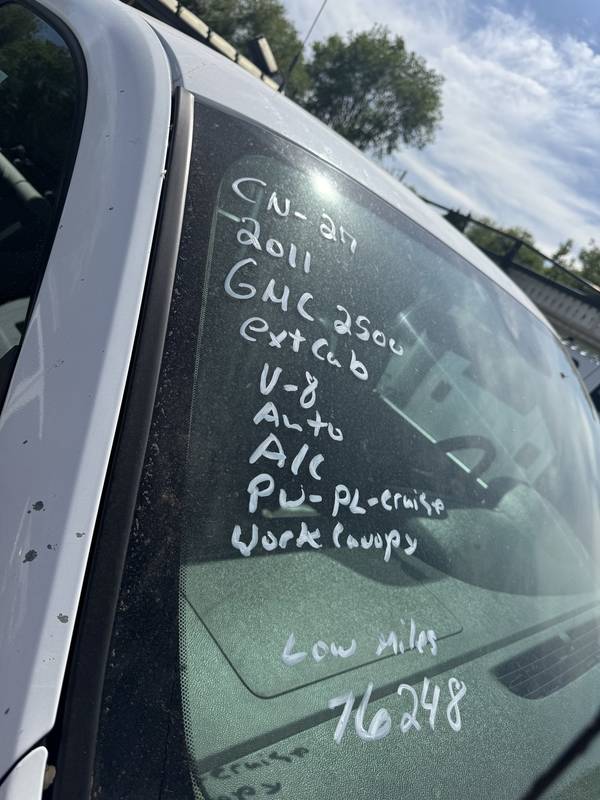 CN-27
2011
GMC 2500
ext cab
V-8
Auto
A/C
PW-PL-cruise
Work Canopy
Low Miles
76248
cruise
opy